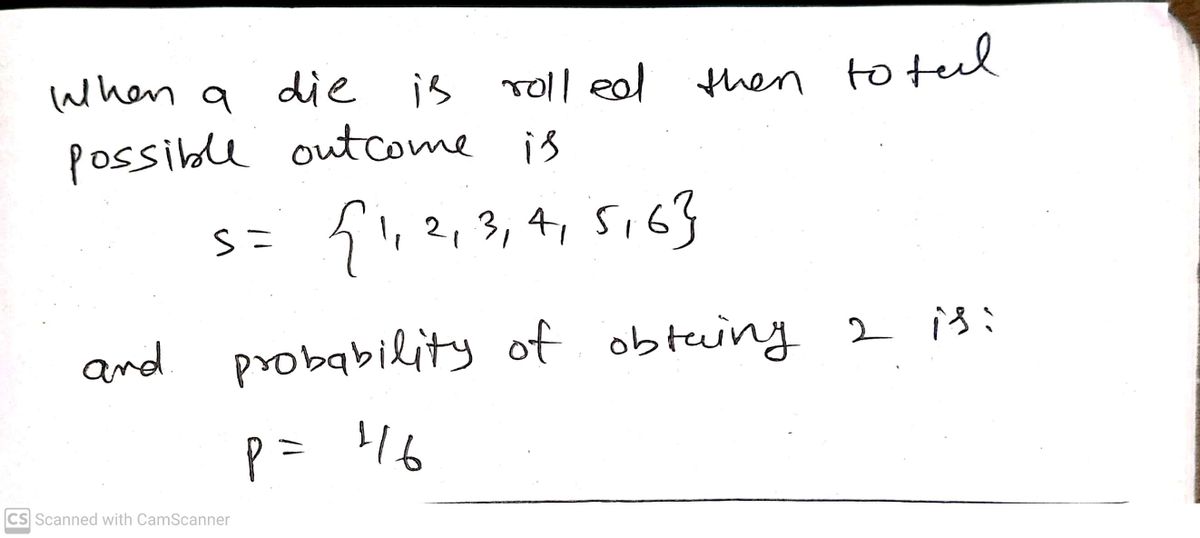 When a die is rolled then total
possible outcome is
S = {1, 2, 3, 4, 5, 6}
and probability of obtaing 2 is:
P = 1/6
CS Scanned with CamScanner